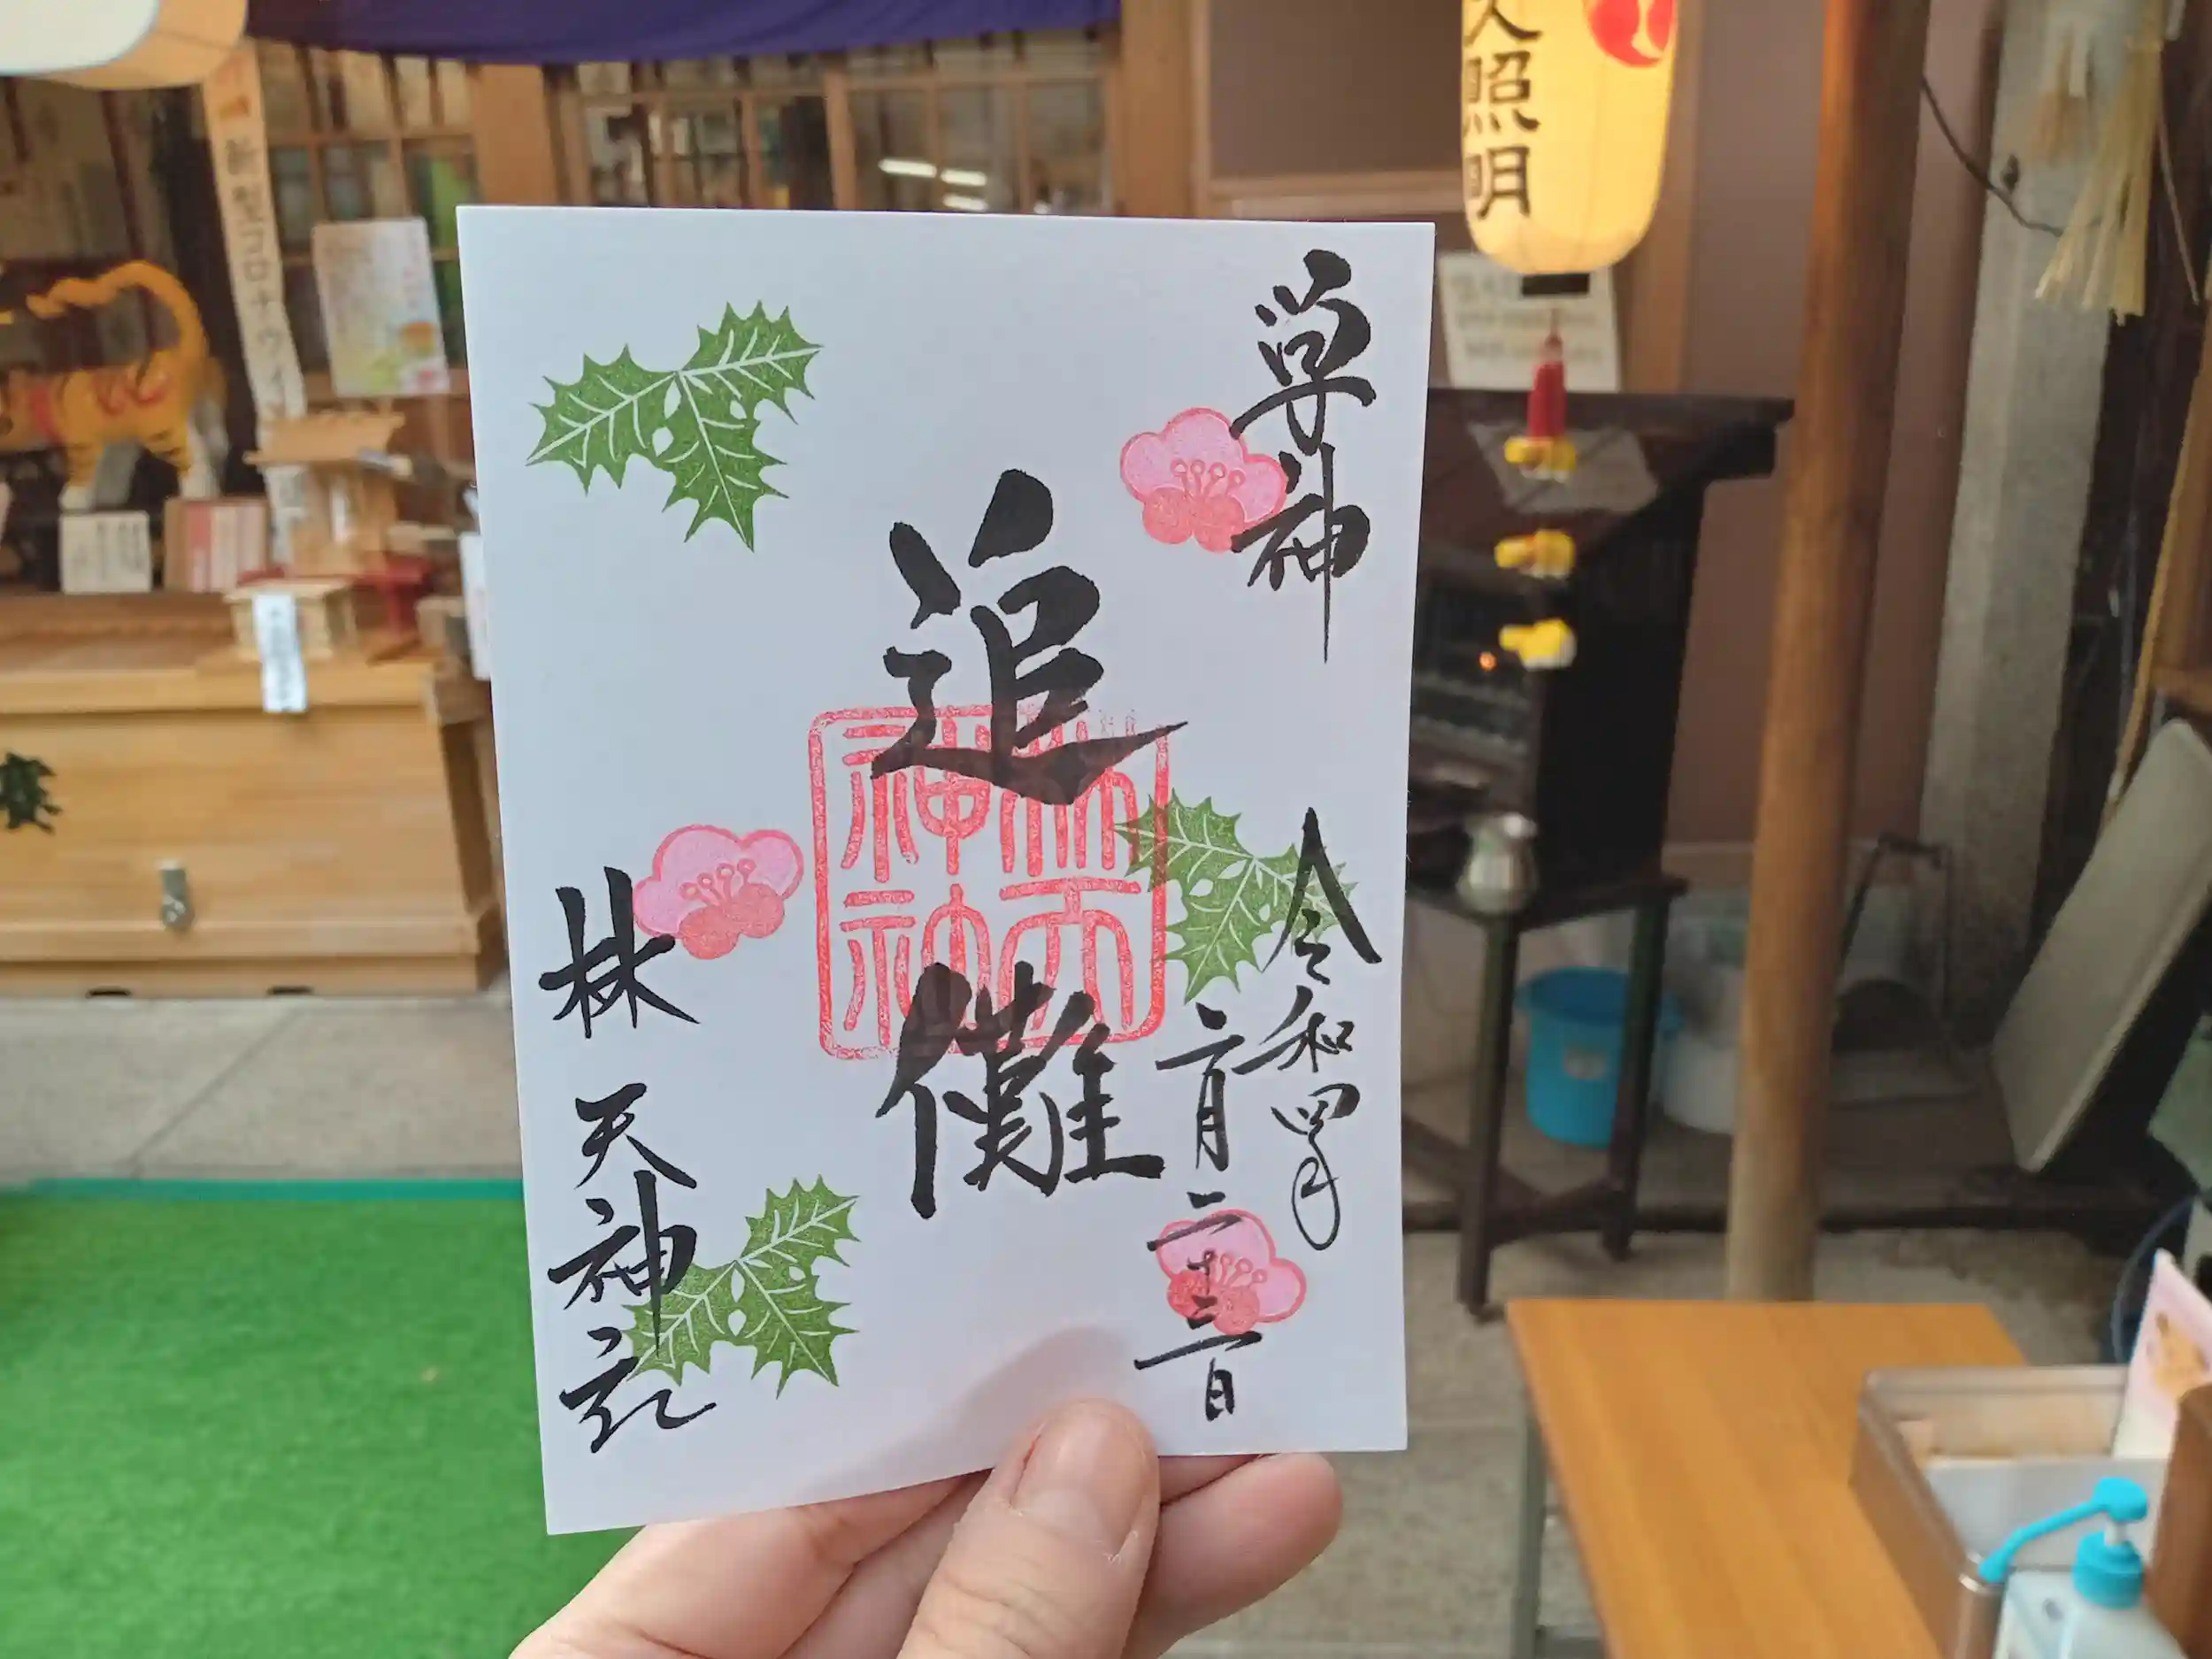 学神
追儺
令和四年
二月二十三日
林天神社
林天
神社
久照明
新型コロナウイ